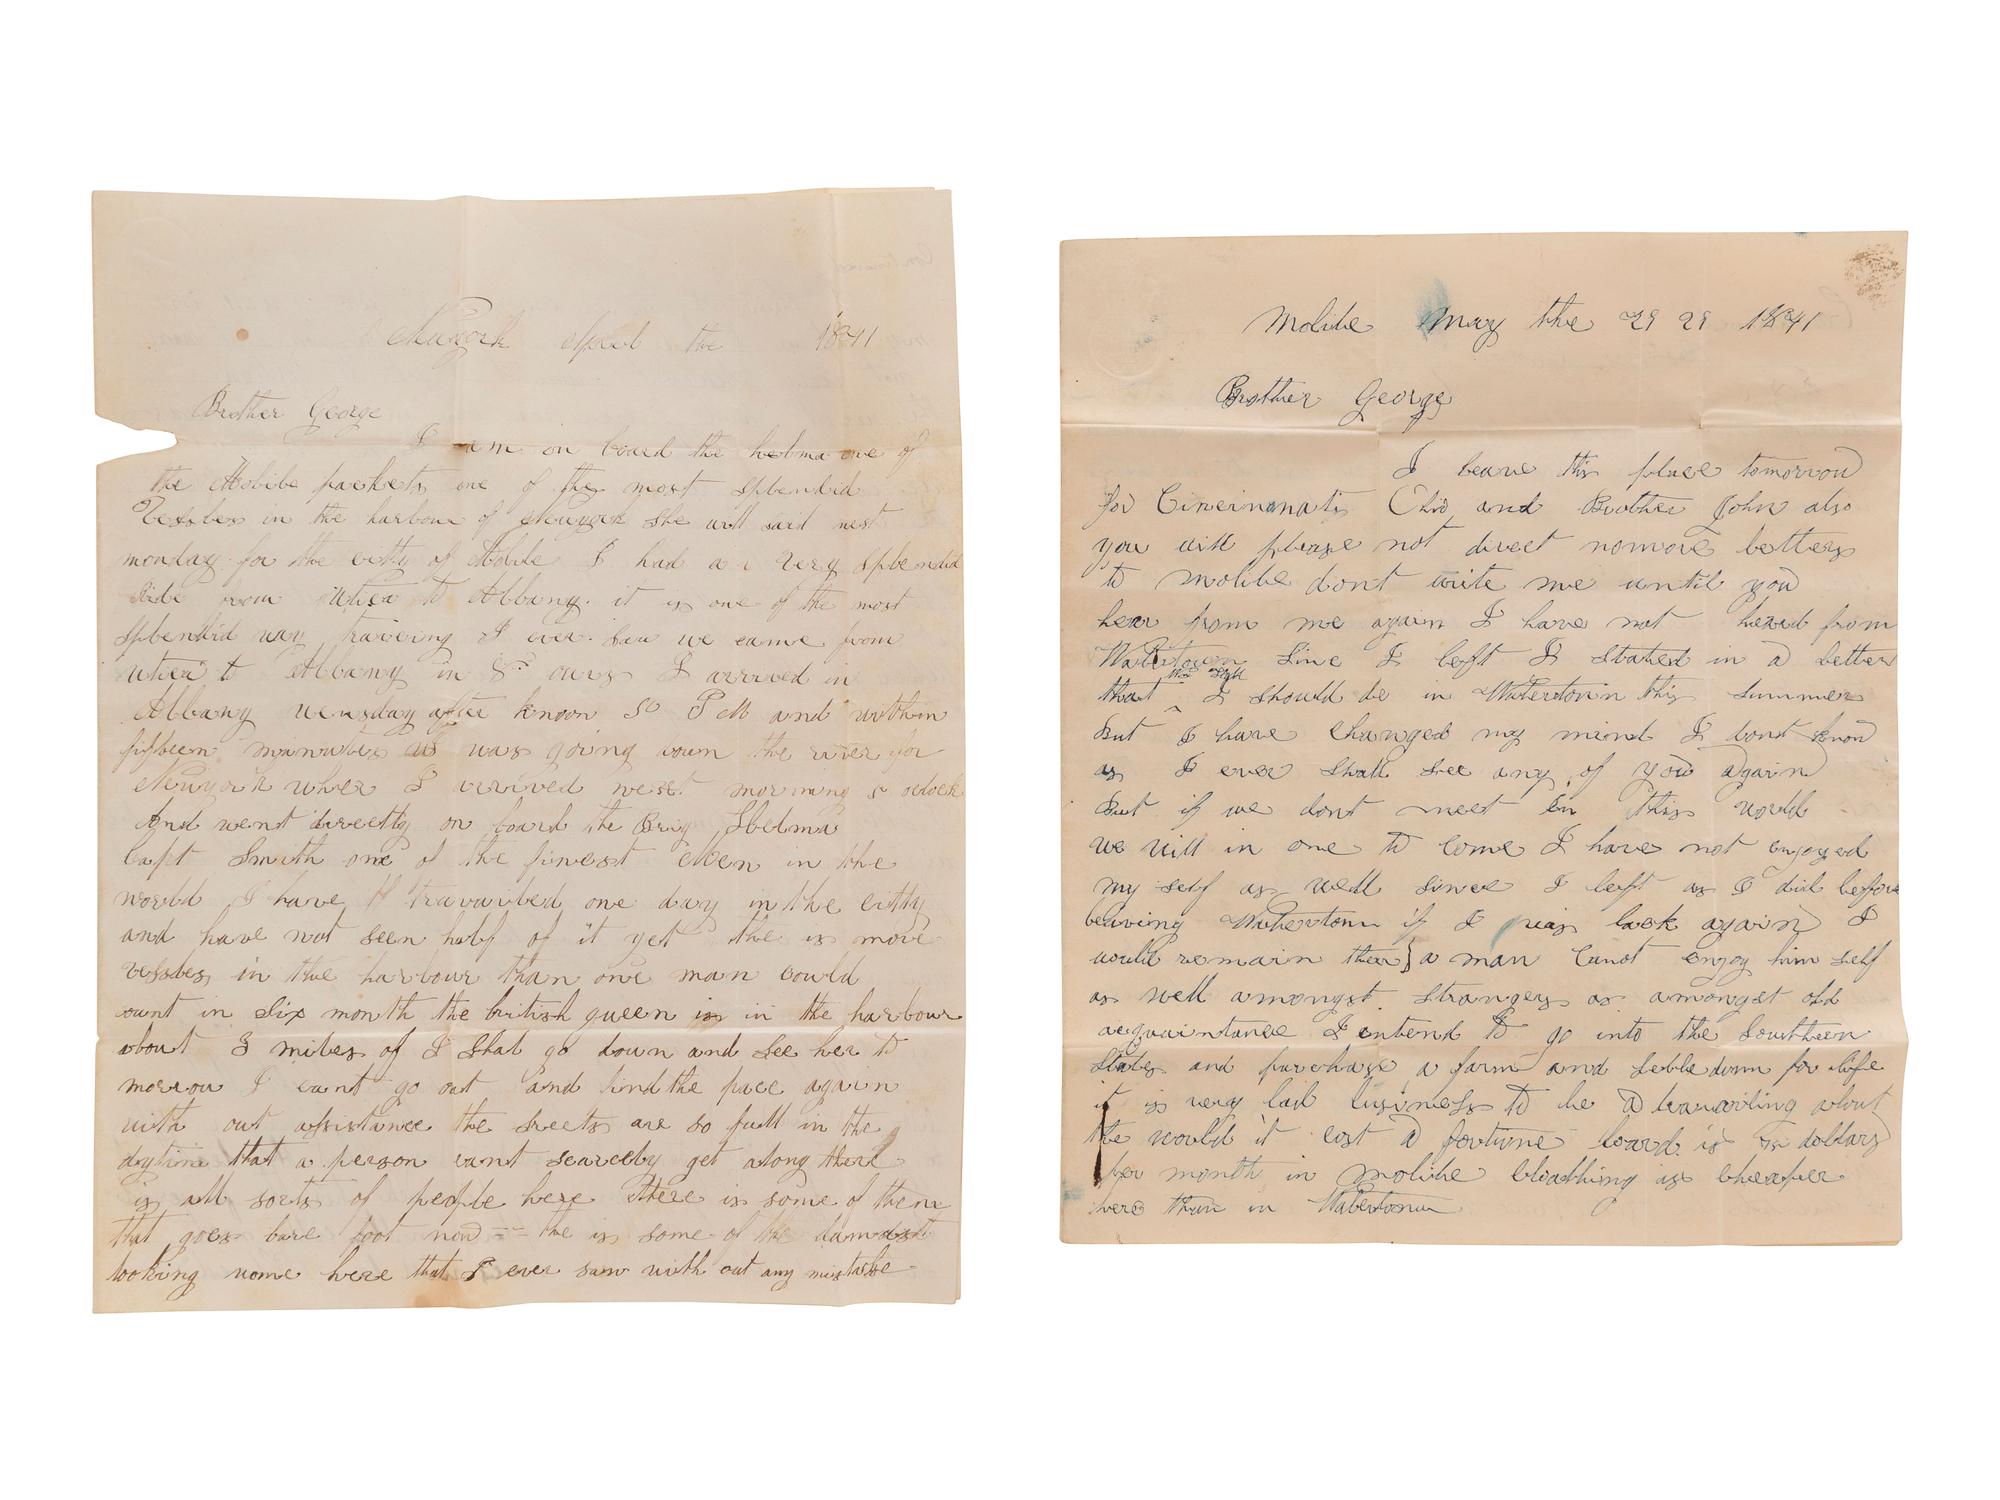 Newyork April the 1841
Brother George
I am on board the helma one of
the Mobile packets one of the most splendid
Vessles in the harbour of Newyork she will sail nest
monday for the citty of Mobile I had a very splendid
ride from Utica to Albany. it is one of the most
splendid way traveing I ever saw we came from
utica to Albany in 8 ours I arrived in
Albany after knoon 5 P M and within
fifteen minutes us was going down the river for
Newyork wher I arrived nest morning 5 oclock
And went directly on board the Brig Shelma
Capt Smith one of the finest Men in the
world I have travailed one day in the citty
and have not seen half of it yet the is more
vessles in the harbour than one man could
count in six month the british queen is in the harbour
about 3 miles of I shal go down and see her to
morrow I cant go out and find the place again
with out assistance the sreets are so full in the
daytime that a person cant scarcely get along there
is all sorts of people here there is some of them
that goes bare foot now == the is some of the damdest
looking wome here that I ever saw with out any mistake
Mobile May the 29 29 1841
Brother George
I leave this place tomorrow
for Cincinnati Ohio and Brother John also
you will please not direct nomore letters
to Mobile dont write me until you
hear from me again I have not heard from
Watertown Sinc I left I stated in a letter
that I should be in Watertown this summer
But I have changed my mind I dont know
as I ever shall see any of you Again
But if we dont meet in this world
we will in one to come I have not enjoyed
my self as well since I left as I did before
leaving Watertown if I was back again I
would remain ther) a man Cant enjoy him self
as well amongst strangers as amongst old
acquaintance I entend to go into the Southern
States and purchase a farm and settle down for life
it is very bad business to be a travailing about
the world it cost a fortune board is dollars
per month in Mobile cloathing is cheaper
here than in Watertown